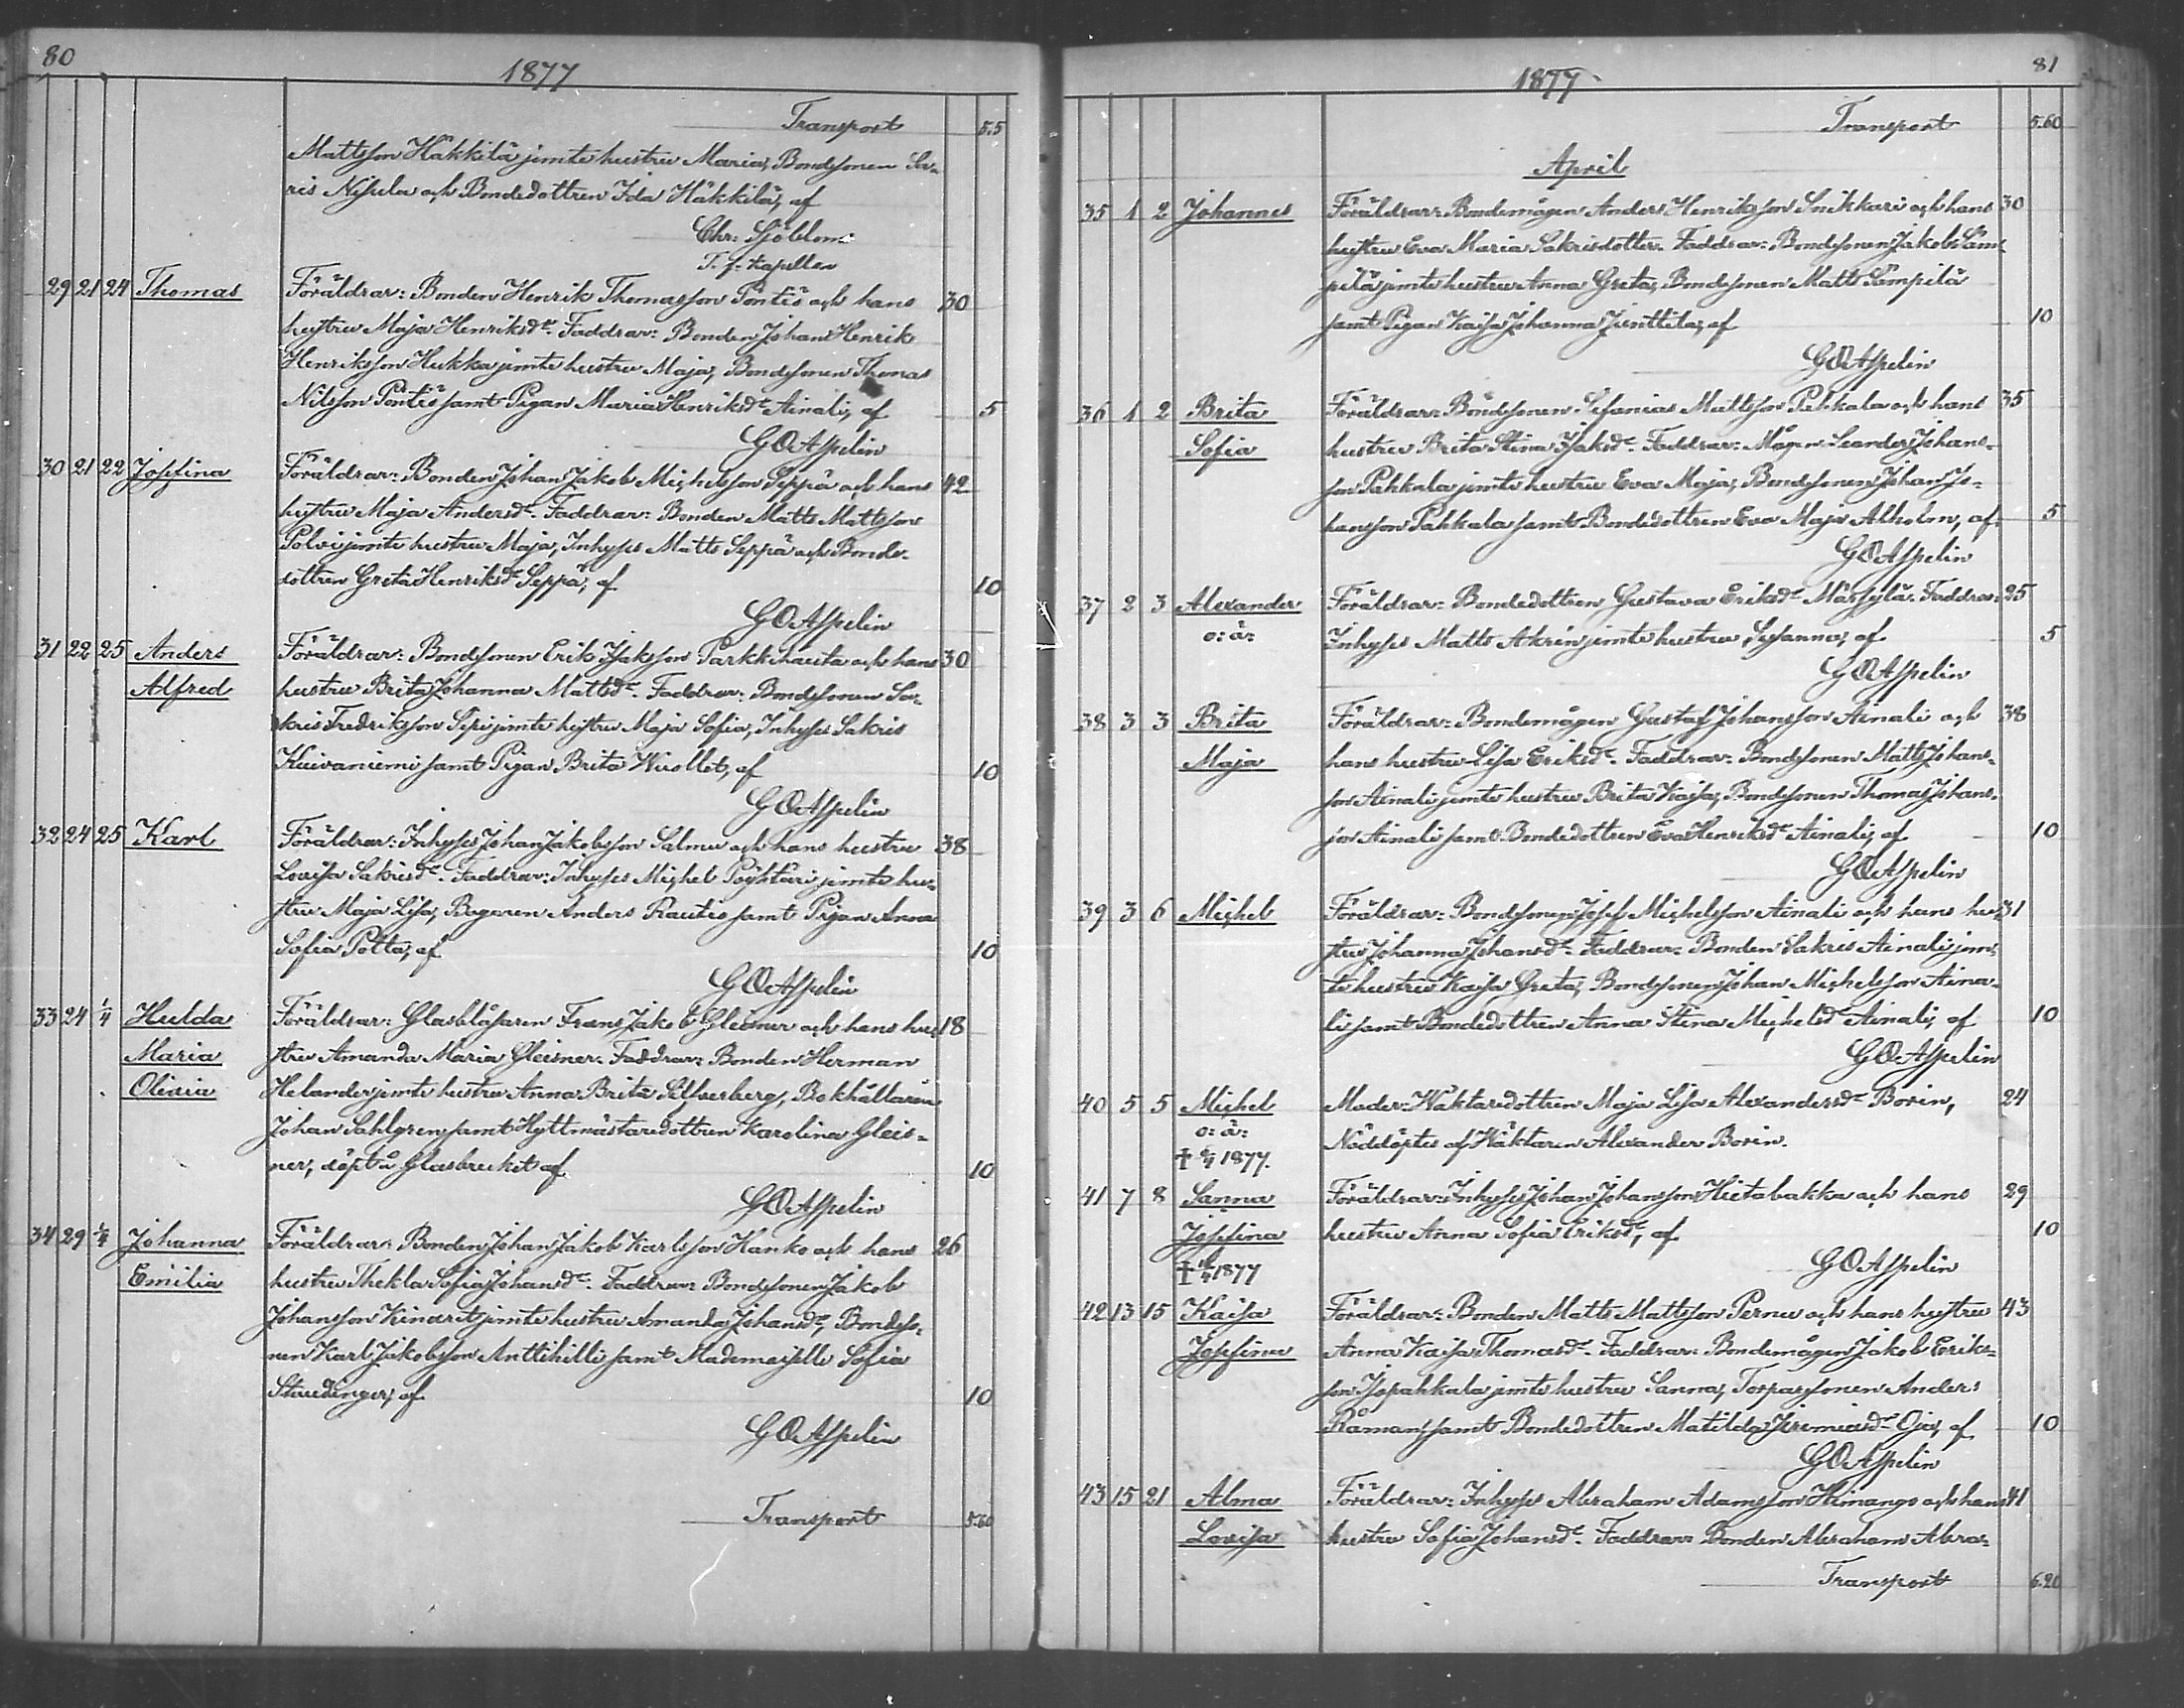 80
1877
Transport 5.5
Mattsson Häkkilä jemte hustru Maria, Bondsonen Sa-
ris Nisula och Bondedottren Ida Häkkilä, af
Chr: Sjöblom
T. f. Kapellan
29 21 24 Thomas Föräldrar: Bonden Henrik Thomasson Pöntiö och hans 30
hustru Maja Henriksdr. Faddrar: Bonden Johan Henrik
Henriksson Hukka jemte hustru Maja, Bondsonen Thomas
Nilsson Pöntiö samt Pigan Maria Henriksdr Ainali, af 5
G O Aspelin
30 21 22 Josefina Föräldrar: Bonden Johan Jakob Michelsson Seppä och hans 42
hustru Maja Andersdr. Faddrar: Bonden Matts Mattsson
Polvi jemte hustru Maja, Inhyses Matts Seppä och Bonde-
dottren Greta Henriksdr Seppä, af 10
G O Aspelin
31 22 25 Anders Föräldrar: Bondsonen Erik Isaksson Parkkihauta och hans 30
Alfred hustru Brita Johanna Mattsdr. Faddrar: Bondsonen Sa-
kris Fredriksson Sipi jemte hustru Maja Sofia, Inhyses Sakris
Kuivaniemi samt Pigan Brita Wuollet, af 10
G O Aspelin
32 24 25 Karl Föräldrar: Inhyses Johan Jakobsson Salmu och hans hustru 38
Lovisa Sakrisdr. Faddrar: Inhyses Michel Pöyhtäri jemte hu-
stru Maja Lisa, Bagaren Anders Rautio samt Pigan Anna
Sofia Potta, af 10
G O Aspelin
33 24 1/4 Hulda Föräldrar: Glasblåsaren Frans Jakob Gleisner och hans hu- 18
Maria stru Amanda Maria Gleisner. Faddrar: Bonden Herman
Olivia Helander jemte hustru Anna Brita Silfverberg, Bokhållaren
Johan Sahlgren samt Hyttmästaredottren Karolina Gleis-
ner, döpt å Glasbruket af 10
G O Aspelin
34 29 1/4 Johanna Föräldrar: Bonden Johan Jakob Karlsson Hanko och hans 26
Emilia hustru Thekla Sofia Johansdr. Faddrar: Bondsonen Jakob
Johansson Kinarit jemte hustru Amanda Johansdr, Bondso-
nen Karl Jakobsson Anttihilli samt Mademoiselle Sofia
Staudinger, af 10
G O Aspelin
Transport 5.60
81
1877
Transport 5.60
April
35 1 2 Johannes Föräldrar: Bondemågen Anders Henriksson Snikkari och hans 30
hustru Eva Maria Sakrisdotter. Faddrar: Bondsonen Jakob Säm-
pilä jemte hustru Anna Greta, Bondsonen Matts Sämpilä
samt Pigan Kaisa Johanna Junttila, af 10
G O Aspelin
36 1 2 Brita Föräldrar: Bondsonen Sefanias Mattsson Pahkala och hans 35
Sofia hustru Brita Stina Isaksdr. Faddrar: Mågen Leander Johans-
son Pahkala jemte hustru Eva Maja, Bondsonen Johan Jo-
hansson Pahkala samt Bondedottren Eva Maja Alholm, af 5
G O Aspelin
37 2 3 Alexander Föräldrar: Bondedottren Gustava Eriksdr Märsylä. Faddrar: 25
o: ä: Inhyses Matts Akrin jemte hustru Susanna, af 5
G O Aspelin
38 3 3 Brita Föräldrar: Bondemågen Gustaf Johansson Ainali och 38
Maja hans hustru Lisa Eriksdr. Faddrar: Bondsonen Matts Johans-
son Ainali jemte hustru Brita Kaisa, Bondsonen Thomas Johans-
son Ainali samt Bondedottren Eva Henriksdr Ainali, af 10
G O Aspelin
39 3 6 Michel Föräldrar: Bondsonen Josef Michelsson Ainali och hans hu- 31
stru Johanna Johansdr. Faddrar: Bonden Sakris Ainali jem-
te hustru Kaisa Greta, Bondsonen Johan Michelsson Aina-
li samt Bondedottren Anna Stina Michelsdr Ainali, af 10
G O Aspelin
40 5 5 Michel Moder: Wäktaredottren Maja Lisa Alexandersdr Borin, 24
o: ä: Nöddöptes af Wäktaren Alexander Borin.
† 1877.
41 7 8 Sanna Föräldrar: Inhyses Johan Johansson Hietabakka och hans 29
Josefina hustru Anna Sofia Eriksdr, af 10
† 1877 G O Aspelin
42 13 15 Kaisa Föräldrar: Bonden Matts Mattsson Pernu och hans hustru 43
Josefina Anna Kaisa Thomasdr. Faddrar: Bondemågen Jakob Eriks-
son Isopahkala jemte hustru Sanna, Torparsonen Anders
Råman samt Bondedottren Matilda Jeremiasdr Oja, af 10
G O Aspelin
43 15 21 Alma Föräldrar: Inhyses Abraham Adamsson Himango och hans 41
Lovisa hustru Sofia Johansdr. Faddrar: Bonden Abraham Abra-
Transport 6.20